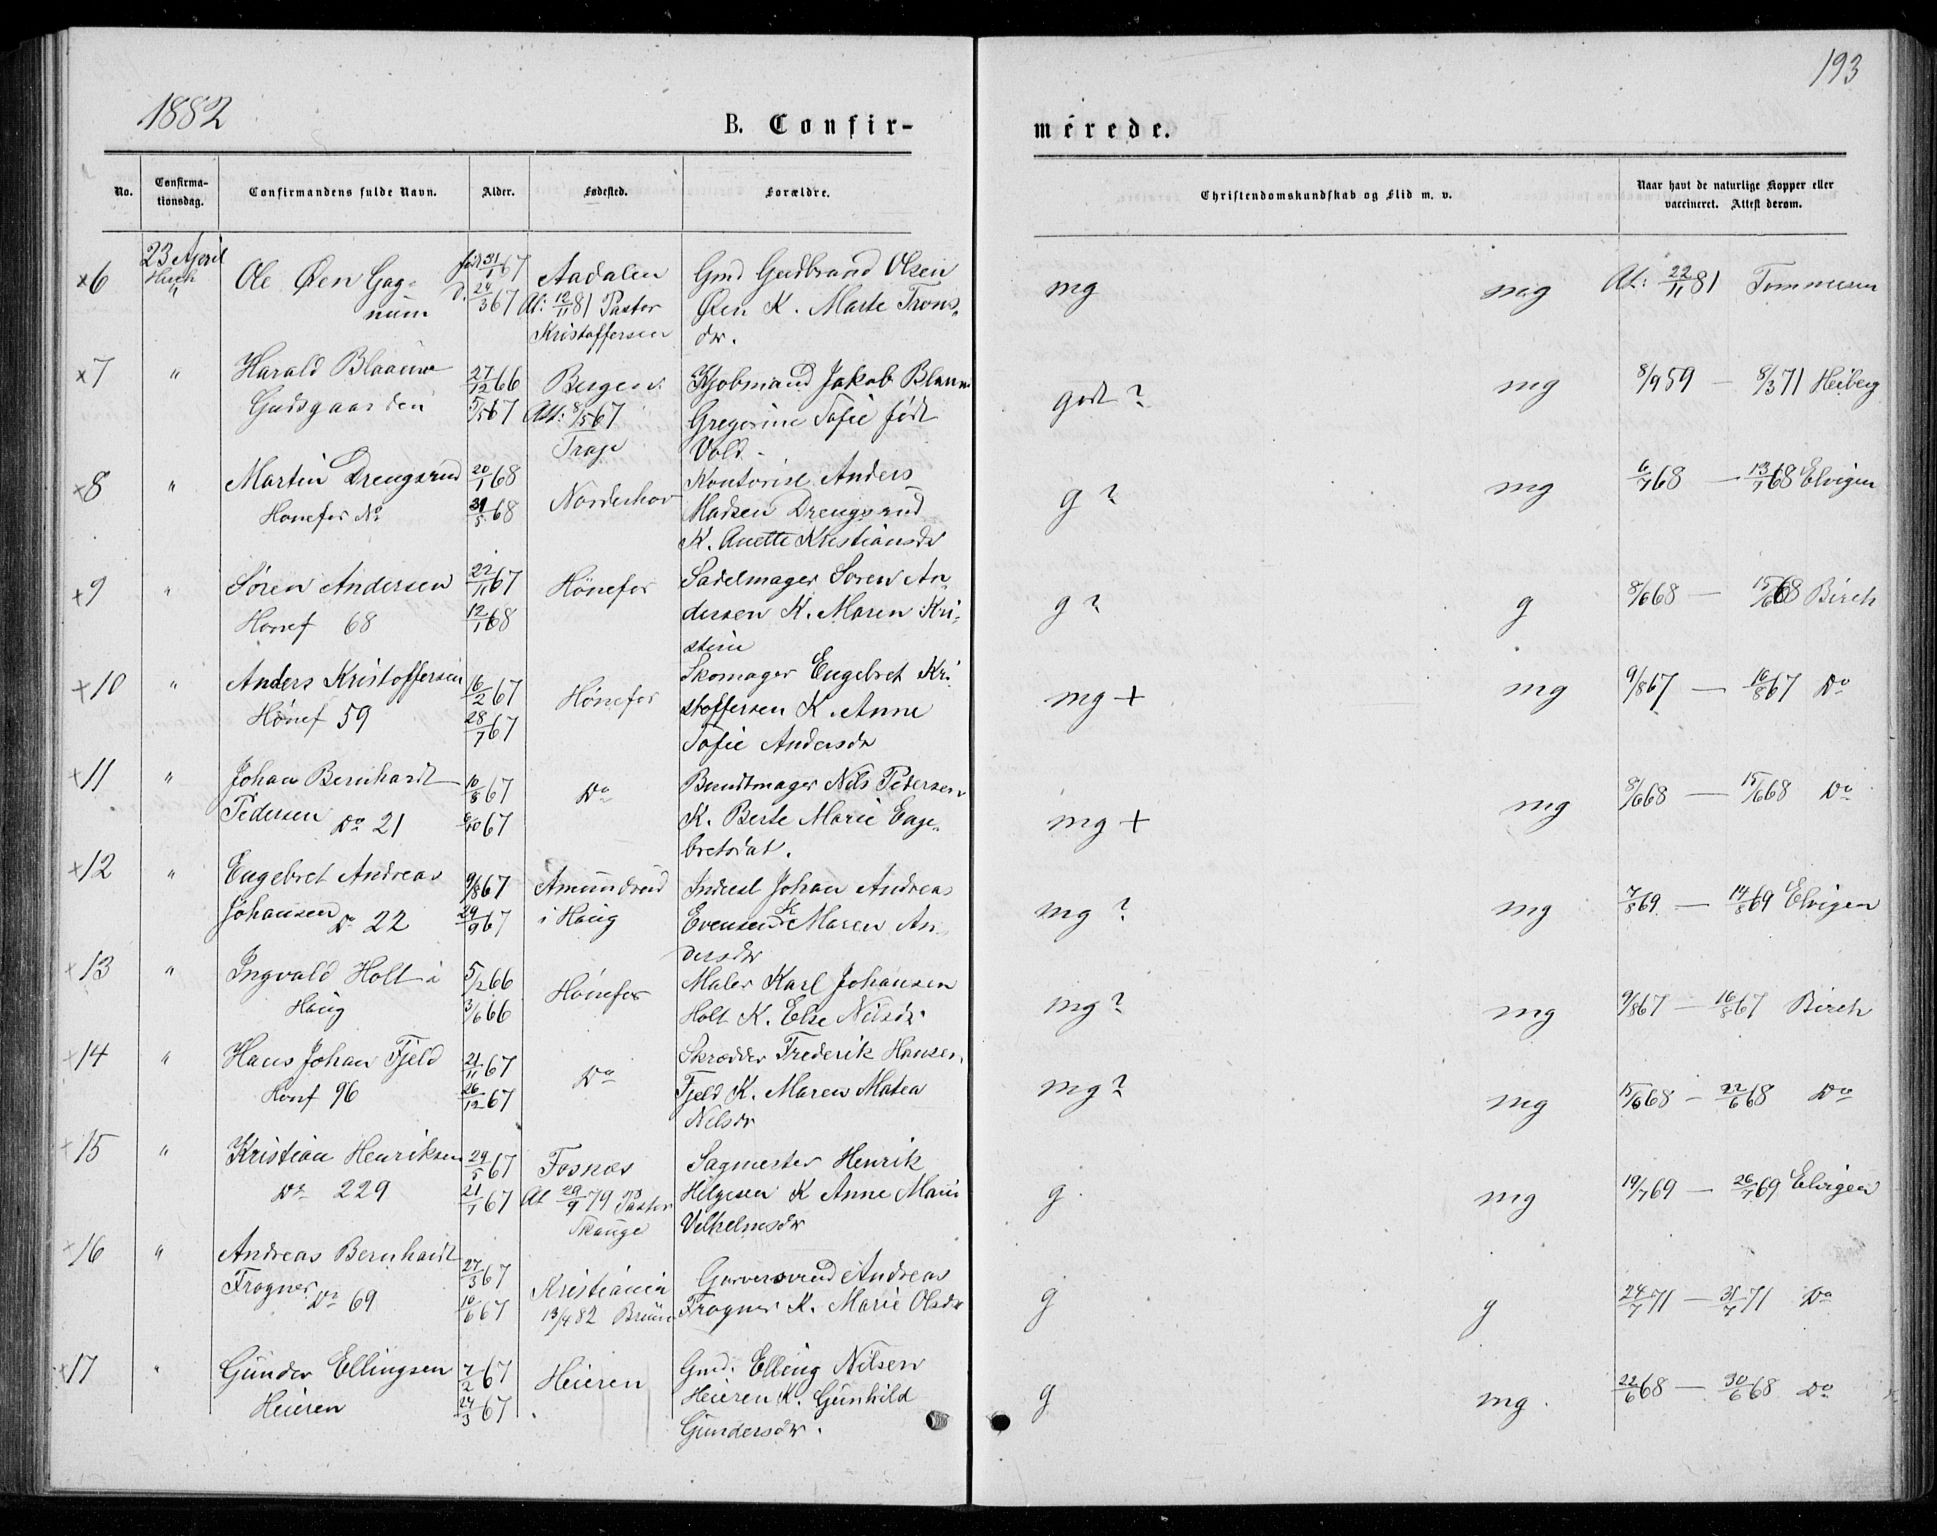 1882
193
B. Confir-
merede.
No.
Confirma-
tionsdag.
Confirmandens fulde Navn.
Alder.
Fødested.
Forældre.
Christendomskundskab og Flid m. v.
Naar havt de naturlige Kopper eller
vaccineret. Attest derom.
×6 23 April Ole Øen Gag- 31/1 67 Aadalen Gmd Gudbrand Olsen mg mg At: 22/11 81 Tommesen
" num D. 24/3 67 At: 12/11 81 Pastor Øen K. Marte Trons-
Kristoffersen dr.
×7 " Harald Blaauw 27/12 66 Bergen Kjøbmand Jakob Blaauw godt? mg 8/9 59 — 8/3 71 Heiberg
Gudsgaarden 5/5 67 Att: 8/5 67 Gregorine Sofie født
Vold
×8 " Martin Drengsrud 20/1 68 Norderhov Kontorist Anders g? mg 6/7 68 — 13/7 68 Elvigen
Honefos No 31/5 68 Madsen Drengsrud
K. Anette Kristiansdr
×9 " Søren Andersen 22/11 67 Hönefos Sadelmager Soren An- g? g 8/6 68 — 15/6 68 Birch
Honef 68 12/1 68 dersen K. Maren Kri-
stine
×10 " Anders Kristoffersen 16/2 67 Hönefos Skomager Engebret Kri- mg + mg 9/8 67 — 16/8 67 Do
Hönef 59 28/7 67 stoffersen K. Anne
Sofie Andersdr
×11 " Johan Bernhardt 10/8 67 Do Bundtmager Nils Petersen mg + mg 8/6 68 — 15/6 68 Do
Pedersen Do 21 6/10 67 K. Berte Marie Enge-
bretsdat.
×12 " Engebret Andreas 9/8 67 Amundrud Inderst Johan Andreas mg? mg 7/8 69 — 14/8 69 Elvigen
Johansen Do 22 29/9 67 i Haug Evensen K. Maren An-
dersdr
×13 " Ingvald Holt i 5/2 66 Hönefos Maler Karl Johansen mg? mg 9/8 67 — 16/8 67 Birch
Haug 3/6 66 Holt K. Else Nilsdr
×14 " Hans Johan Fjeld 21/11 67 Do Skrædder Frederik Hansen mg? mg 15/6 68 — 22/6 68 Do
Honf 96 26/12 67 Fjeld K. Maren Matea
Nilsdr
×15 " Kristian Henriksen 29/5 67 Fosnæs Sagmester Henrik g mg 19/7 69 — 26/7 69 Elvigen
Do 229 21/7 67 At 29/9 79 Pastor Helgesen K Anne Marie
Skauge Vilhelmsdr
×16 " Andreas Bernhardt 27/3 67 Kristiania Garversvend Andreas g g 24/7 71 — 31/7 71 Do
Frogner Do 69 10/6 67 13/4 82 Bruun Frogner K. Marie Olsdr
×17 " Gunder Ellingsen 7/2 67 Heieren Gmd. Elling Nilsen g mg. 22/6 68 — 30/6 68 Do
Heieren 24/3 67 Heieren K. Gunhild
Gundersdr.